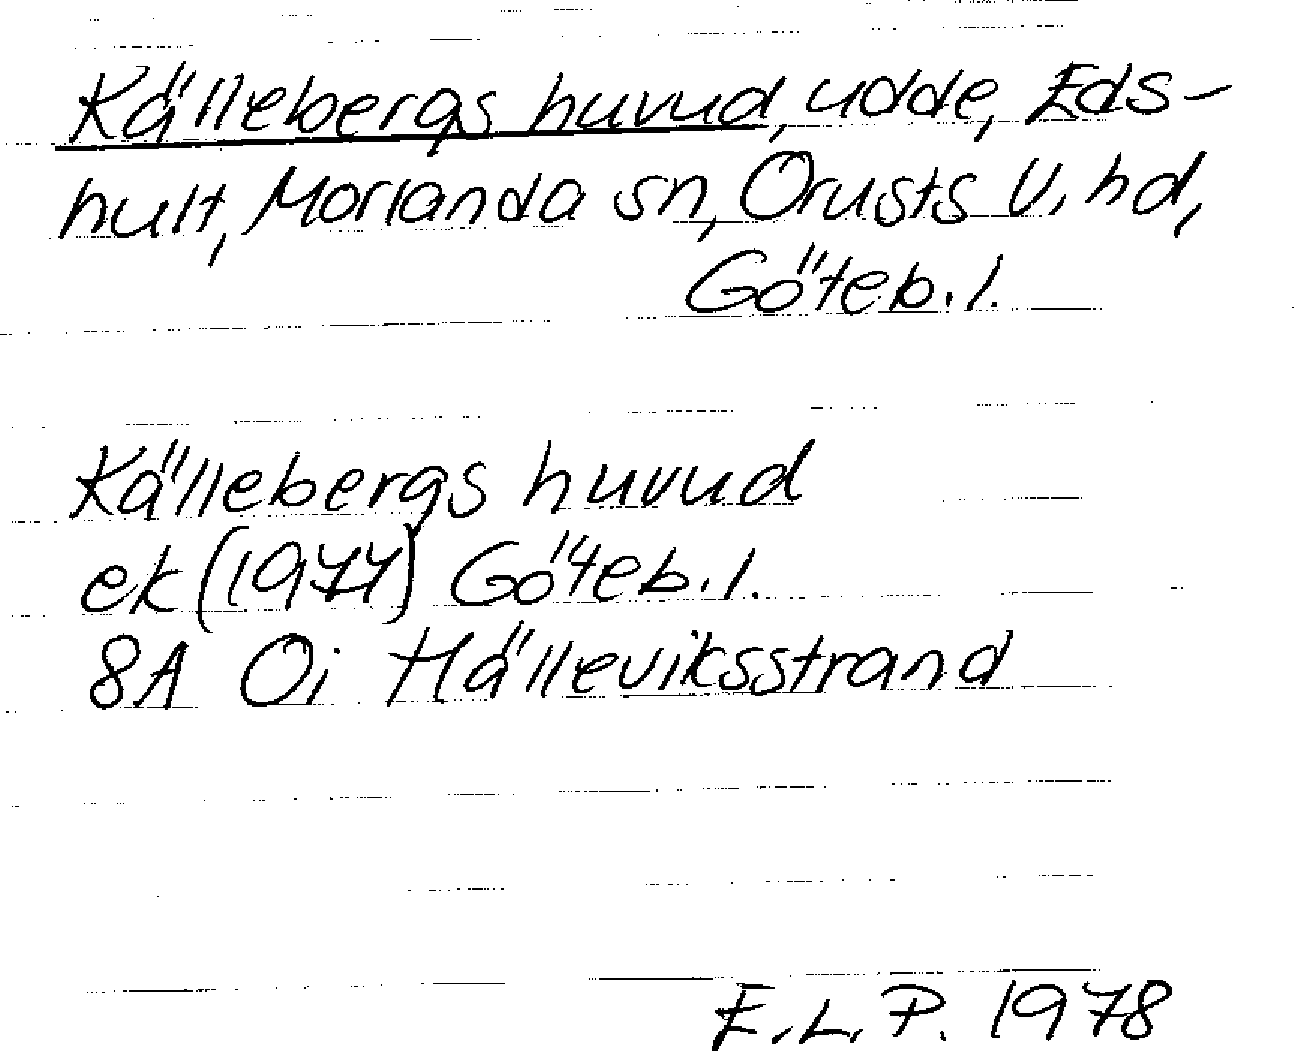 Källebergs huvud, udde, Eds-
hult, Morlanda sn, Orusts v. hd,
Göteb. l.
Källebergs huvud
ek (1977) Göteb. l.
8A Oi Hälleviksstrand
E. L. P. 1978